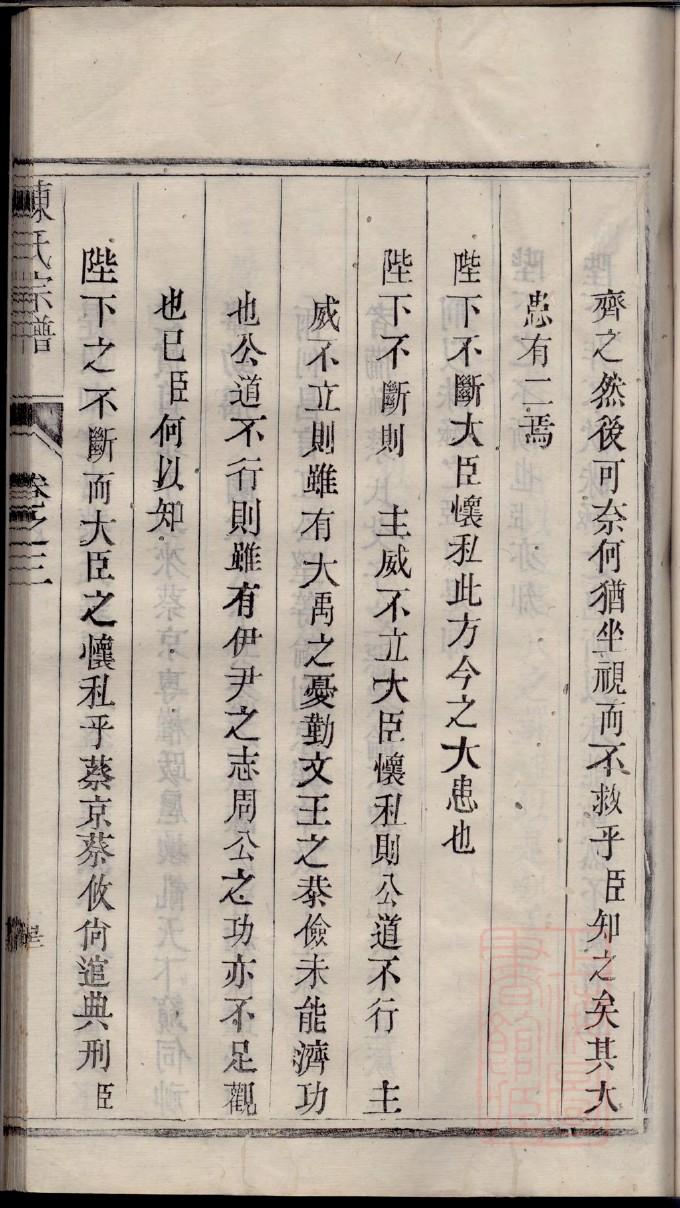 齊之然後可奈何猶坐視而不救乎臣知之矣其大
患有二焉
陛下不斷大臣懷私此方今之大患也
陛下不斷則 主威不立大臣懷私則公道不行 主
威不立則雖有大禹之憂勤文王之恭儉未能濟功
也公道不行則雖有伊尹之志周公之功亦不足觀
也已臣何以知
陛下之不斷而大臣之懷私乎蔡京蔡攸尙逭典刑臣
陳氏宗譜
卷之三